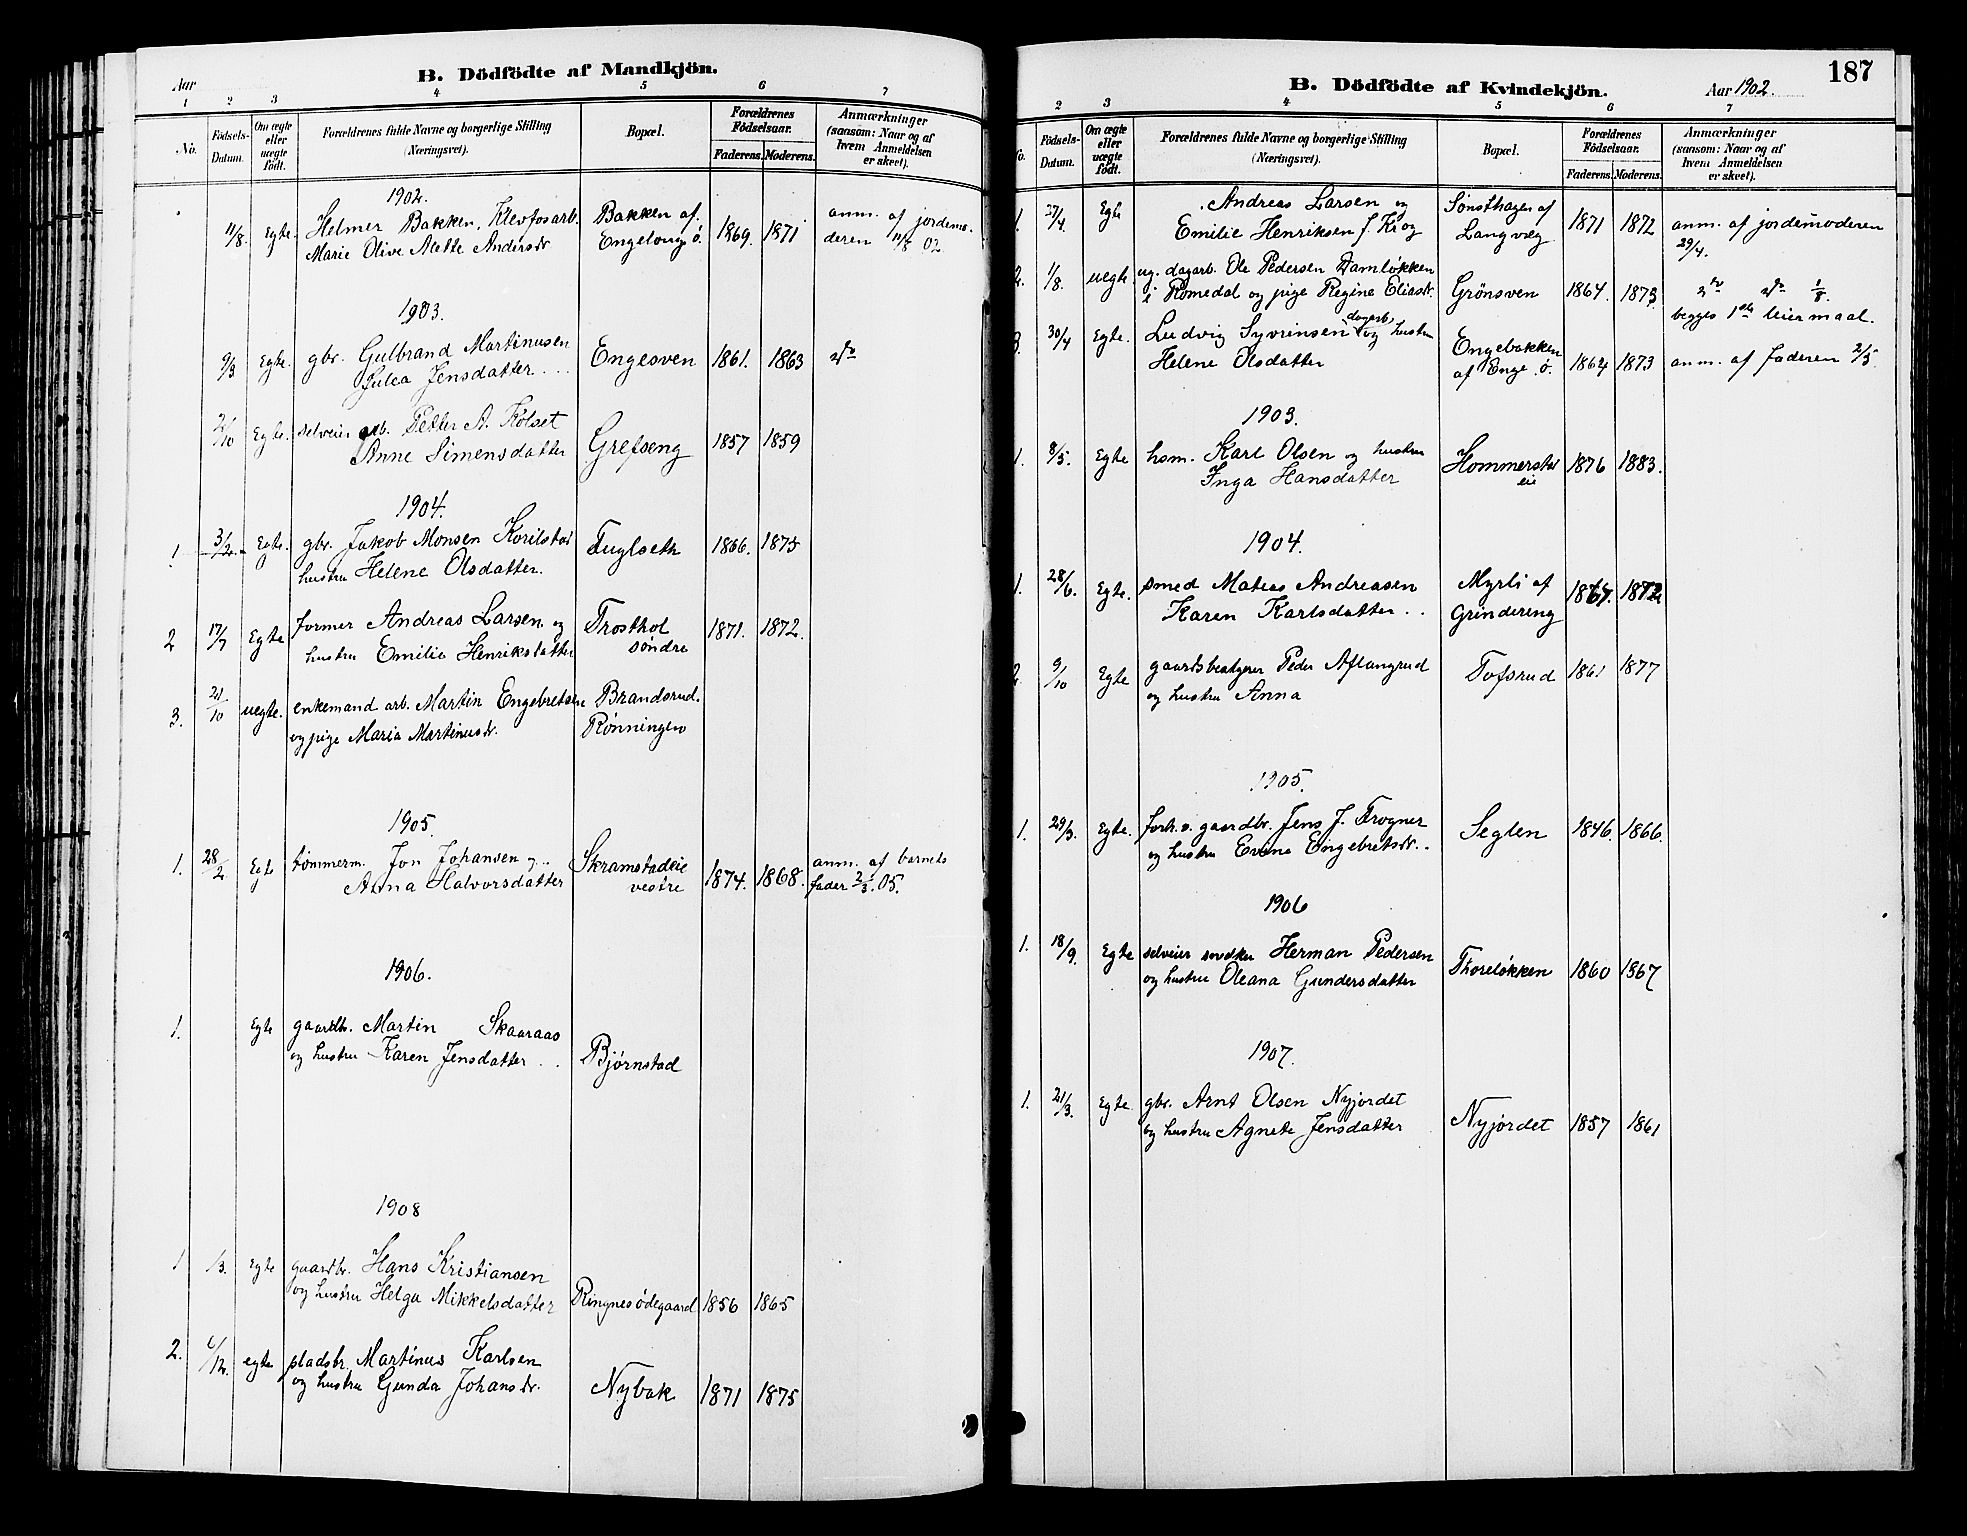 B. Dödfödte af Mandkjön.
Aar
1 2 3 4 5 6 7
No.
Födsels-Datum.
Om ægte eller uægte födt.
Forældrenes fulde Navne og borgerlige Stilling
(Næringsvei).
Bopæl.
Forældrenes Födselsaar.
Faderens. Moderens.
Anmærkninger
(saasom: Naar og af
hvem Anmeldelsen
er skeet).
1902.
11/8. Egte. Helmer Bakken, Klevfosarb. Bakken af 1869. 1871 anm. af jordemo-
Marie Olive Aette Andersdr Engelong ø. deren 11/8 02
1903.
9/3 Egte. gbr. Gulbrand Martinusen Engesven 1861. 1863 do
Julea Jensdatter
2/10 Egte. selveier arb. Petter A. Kølset Grefseng 1857 1859
Anne Simensdatter
1904.
1 3/2. Egte. gbr. Jakob Monsen Korilstad Fuglseth 1866. 1875
hustru Helene Olsdatter.
2 17/7 Egte former Andreas Larsen og Frosthol 1871. 1872.
hustru Emilie Henriksdatter søndre
3. 21/10 uegte. enkemand arb. Martin Engebretsen Brandsrud.
og pige Maria Martinusdr. Rønningen
1905.
1. 28/2 Egte tømmerm. Jon Johansen og Skramstadeie 1874. 1868. anm. af barnets
Anna Halvorsdatter vestre fader 2/3.05.
1906.
1. Egte gaardbr. Martin Skaaraas
og hustru Karen Jensdatter Bjørnstad
1908
1 1/3. Egte gaardbr. Hans Kristiansen
og hustru Helga Mikkelsdatter Ringnesødegaard 1856 1865
2. 6/12. egte pladsbr. Martinus Karlsen
og hustru Gunda Johansdr. Nybak 1871 1875
187
B. Dödfödte af Kvindekjön.
Aar 1902.
2 3 4 5 6 7
No.
Födsels-Datum.
Om ægte eller uægte födt.
Forældrenes fulde Navne og borgerlige Stilling
(Næringsvei).
Bopæl.
Forældrenes Födselsaar.
Faderens. Moderens.
Anmærkninger
(saasom: Naar og af
hvem Anmeldelsen
er skeet).
1. 27/4. Egte Andreas Larsen og Sønsthagen af 1871 1872 anm. af jordemoderen
Emilie Henriksen f. Krog Langvæg 29/4.
2. 1/8. uegte ug. dagarb. Ole Pedersen Damløkken
i Romedal og pige Regine Eliasdr. Grönsven 1864. 1873 do do 1/8.
begges 1ste leiermaal.
3. 30/4 Egte. Ludvig Syvrinsen dagarb. og hustru Engebakken
Helene Olsdatter af Enge ø. 1864 1873 anm. af faderen 2/5
1903.
1. 8/5. Egte hsm. Karl Olsen og hustru Hommerstad 1876 1883.
Inga Hansdatter eie
1904.
1. 28/6. Egte. smed Matias Andreasen Myrli af 1867. 1872
Karen Karlsdatter Grindereng
2. 9/10 Egte gaardsbestyrer Peder Aflangrud Tofsrud 1861 1877
og hustru Anna
1905.
1. 29/3. Egte. forh.v. gaardbr. Jens J. Frogner Seglen 1846. 1866.
og hustru Evine Engebretsdr.
1906
1. 18/9. Egte selveier snedker Herman Pedersen Thoreløkken 1860 1867
og hustru Oleana Gundersdatter
1907.
1. 21/3. Egte gbr. Arnt Olsen Nyjordet
og hustru Agnete Jensdatter Nyjordet 1857 1861